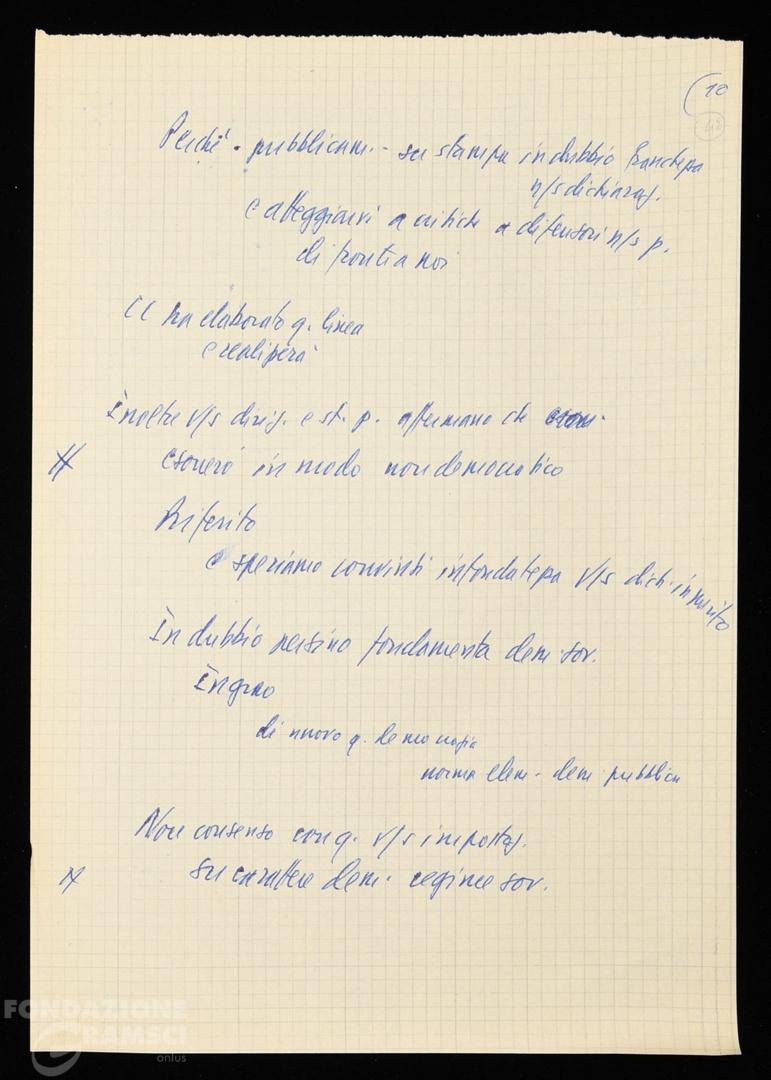 10
42
Perché - pubblicam. - su stampa in dubbio franchezza
n/s dichiaraz.
e atteggiarvi a critiche a difensori n/s p.
di fronti a noi
CC ha elaborato q. linea
e realizzerà
Inoltre v/s dirig. e st. p. affermano che
esonero in modo non democratico
Riferito
e speriamo convinti infondatezza v/s dich. in merito
In dubbio persino fondamenta dem. sov.
Ingrao
di nuovo q. democrazia
norma elem. dem. pubblica
Non consenso con q. v/s impostaz.
su carattere dem. regime sov.
FONDAZIONE
GRAMSCI
onlus